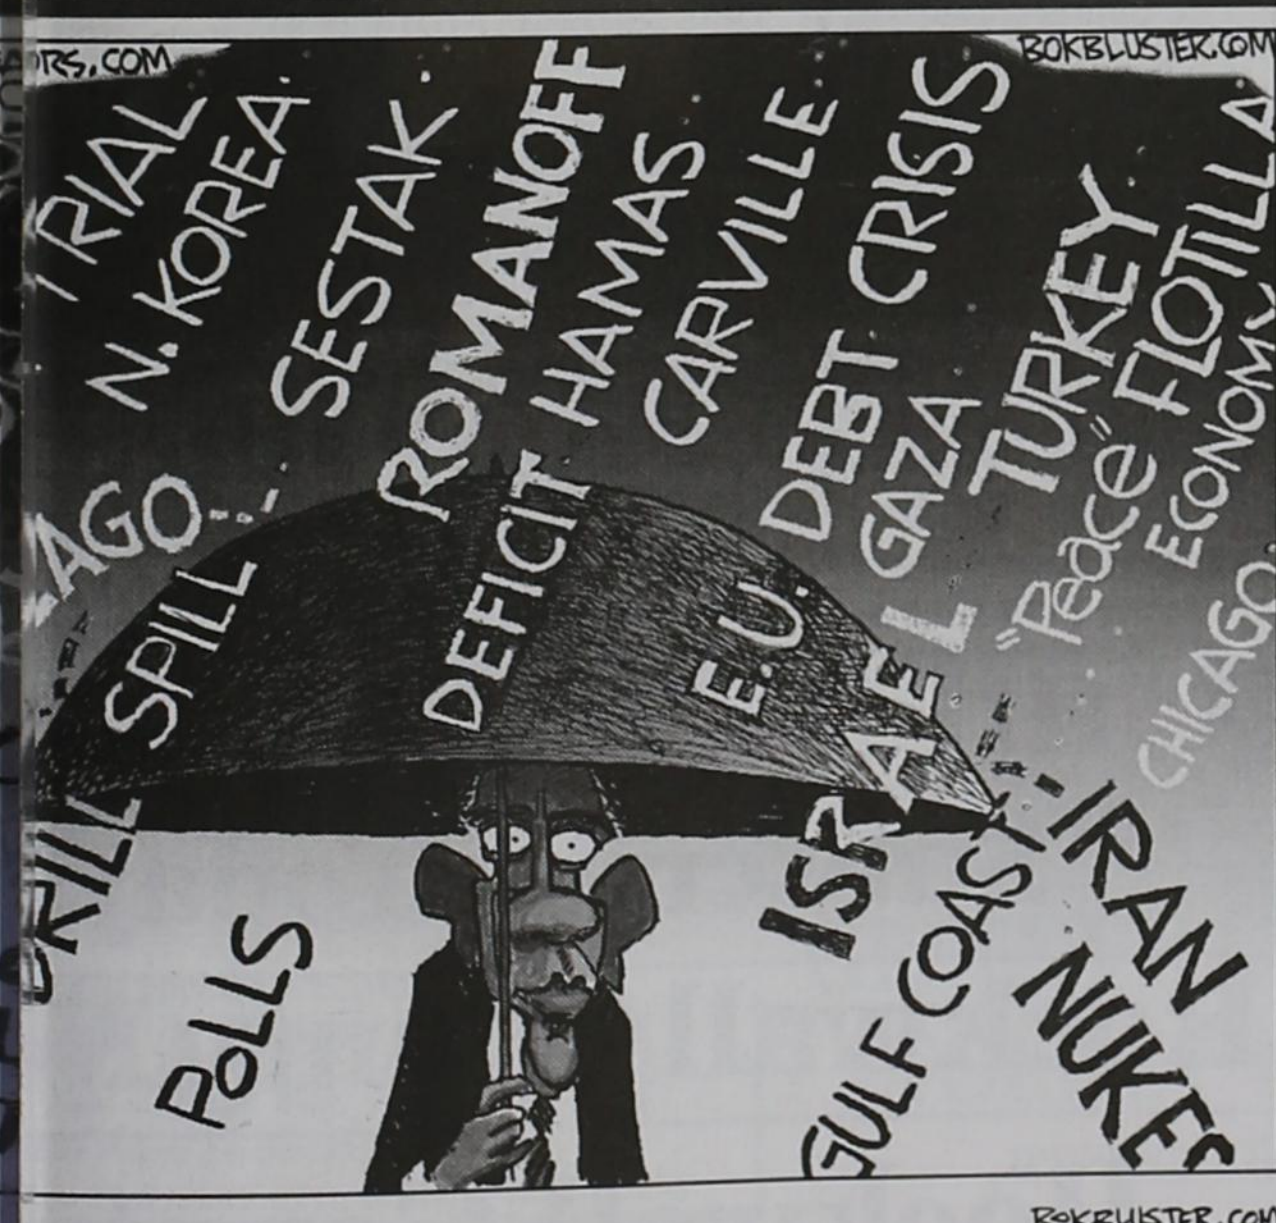 RS.COM
BOKBLUSTER.COM
TRIAL
N. KOREA
SESTAK
ROMANOFF
HAMAS
CARVILLE
DEBT CRISIS
GAZA
TURKEY
"Peace" FLOTILLA
ECONOMY
CHICAGO
AGO
SPILL
DEFICIT
E.U.
ISRAEL
IRAN
NUKES
GULF COAST
DRILL
POLLS
BOKBLUSTER.COM